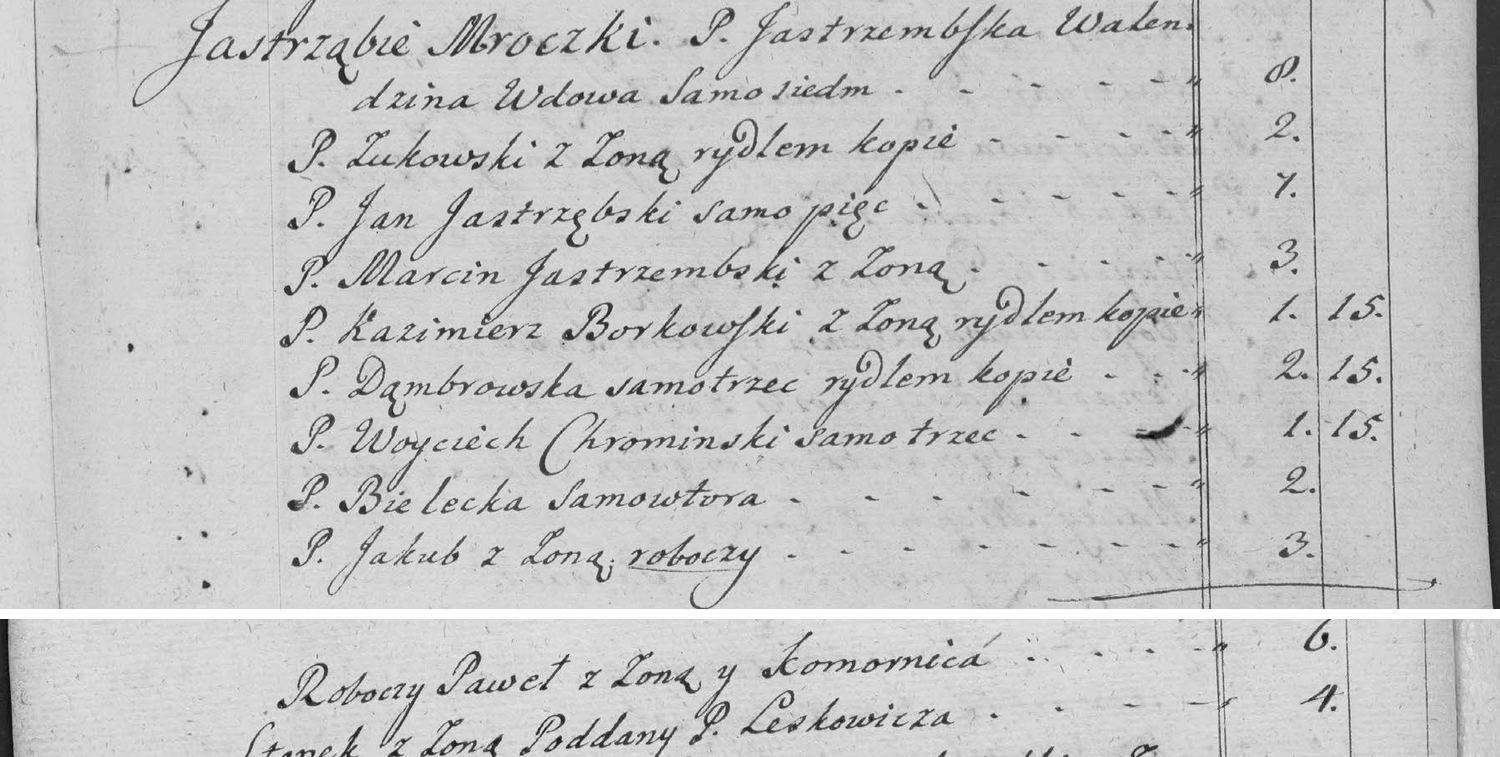 Jastrząbie Mroczki. P. Jastrzembska Walen-
dzina Wdowa Samosiedm - - - - - " 8.
P. Żukowski z Żoną rydlem kopie - - - - " 2.
P. Jan Jastrzębski samo pięc - - - - - " 7.
P. Marcin Jastrzembski z Żoną - - - - " 3.
P. Kazimierz Borkowski z Żoną rydlem kopie " 1. 15.
P. Dąmbrowska samotrzec rydlem kopie - - - " 2. 15.
P. Woyciech Chrominski samotrzec - - - " 1. 15.
P. Bielecka Samowtora - - - - - - - " 2.
P. Jakub z Żoną. roboczy - - - - - - - " 3.
Roboczy Paweł z Żoną y Komornicá - - - - " 6.
z Żoną Poddany P. Leskowicza - - - - " 4.